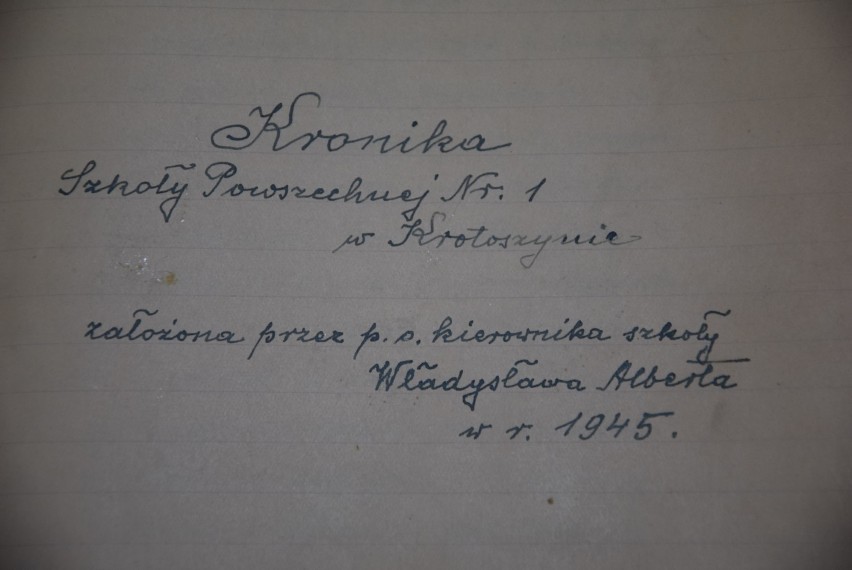 Kronika
Szkoły Powszechnej Nr. 1
w Krotoszynie
założona przez p. o. kierownika szkoły
Władysława Alberta
w r. 1945.